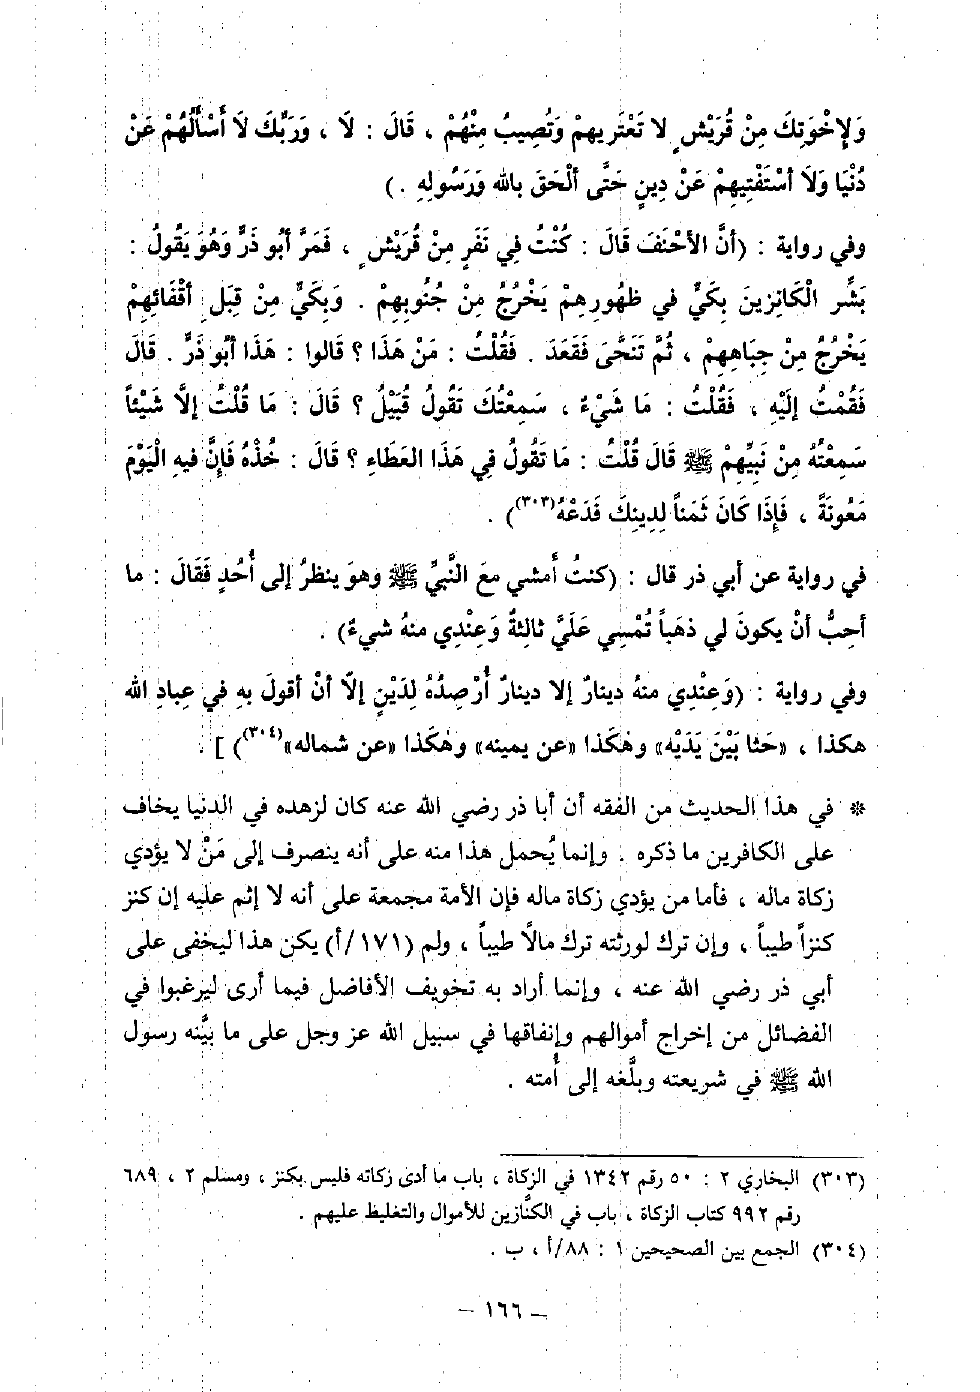 وَلِإخْوَتِكَ مِنْ قُرَيْشٍ لا تَعْتَرِيهِمْ وَتُصِيبُ مِنْهُمْ ، قَالَ : لَا ، وَرَبِّكَ لَا أَسْأَلُهُمْ عَنْ
دُنْيَا وَلَا أَسْتَفْتِيهِمْ عَنْ دِينٍ حَتَّى أَلْحَقَ بالله وَرَسُولِهِ . )
وفي رواية : (أنَّ الأحْنَفَ قَالَ : كُنْتُ فِي نَفَرٍ مِنْ قُرَيْشٍ ، فَمَرَّ أَبُو ذَرٍّ وَهُوَ يَقُولُ :
بَشِّر الْكَانِزِينَ بِكَيٍّ في ظهُورِهِمْ يَخْرُجُ مِنْ جُنُوبِهِمْ . وَبِكَيٍّ مِنْ قِبَلِ أَقْفَائِهِمْ
يَخْرُجُ مِنْ جِبَاهِهِمْ ، ثُمَّ تَنَحَّى فَقَعَدَ . فَقُلْتُ : مَنْ هَذَا ؟ قَالوا : هَذَا أَبُو ذَرٍّ . قَالَ
فَقُمْتُ إِلَيْهِ ، فَقُلْتُ : مَا شَيْءٌ ، سَمِعْتُكَ تَقُولُ قُبَيْلُ ؟ قَالَ : مَا قُلْتُ إِلَّا شَيْئاً
سَمِعْتُهُ مِنْ نَبِيِّهِمْ ﷺ قَالَ قُلْتُ : مَا تَقُولُ فِي هَذَا العَطَاءِ ؟ قَالَ : خُذْهُ فَإِنَّ فيهِ الْيَوْمَ
مَعُونَةً ، فَإِذَا كَانَ ثَمَناً لِدِينِكَ فَدَعْهُ(٣٠٣)) .
في رواية عن أبي ذر قال : (كنتُ أَمشي معَ النَّبيِّ ﷺ وهوَ ينظرُ إلى أُحُدٍ فَقَالَ : ما
أحِبُّ أنْ يكونَ لي ذهَباً تُمْسِي عَلَيَّ ثالِثةٌ وَعِنْدِي منهُ شيءٌ) .
وفي رواية : (وَعِنْدِي منهُ دينارٌ إلا دينارٌ أُرْصِدُهُ لِدَيْنٍ إلّا أنْ أقولَ بهِ في عِبادِ الله
هكذا ، «حَثا بَيْنَ يَدَيْه» وهٰكَذا «عن يمينه» وهٰكَذا «عن شماله»(٣٠٤)) ] .
* في هذا الحديث من الفقه أن أبا ذر رضي الله عنه كان لزهده في الدنيا يخاف
على الكافرين ما ذكره . وإنما يُحمل هذا منه على أنه ينصرف إلى مَنْ لا يؤدي
زكاة ماله ، فأما من يؤدي زكاة ماله فإن الأمة مجمعة على أنه لا إثم عليه إن كنز
كنزاً طيباً ، وإن ترك لورثته ترك مالاً طيباً ، ولم (١٧١/أ) يكن هذا ليخفى على
أبي ذر رضي الله عنه ، وإنما أراد به تخويف الأفاضل فيما أرى ليرغبوا في
الفضائل من إخراج أموالهم وإنفاقها في سبيل الله عز وجل على ما بيَّنه رسول
الله ﷺ في شريعته وبلَّغه إلى أُمته .
(٣٠٣) البخاري ٢ : ٥٠ رقم ١٣٤٢ في الزكاة ، باب ما أدى زكاته فليس بكنز ، ومسلم ٢ ، ٦٨٩
رقم ٩٩٢ كتاب الزكاة ، باب في الكنَّازين للأموال والتغليظ عليهم .
(٣٠٤) الجمع بين الصحيحين ١ : ٨٨/أ ، ب .
– ١٦٦ –